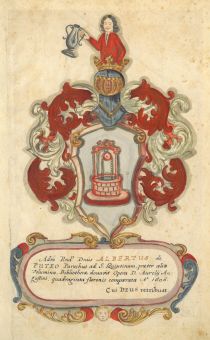 Adm Rnd⁹ Dnus ALBERTUS de
PUTEO Parochus ad S. Quintinum, præter alia
Volumina Bibliothecæ donavit Opera D. Aurelij Au
gustini, quadringentis florenis comparata Aº
Cui DEUS retribuat